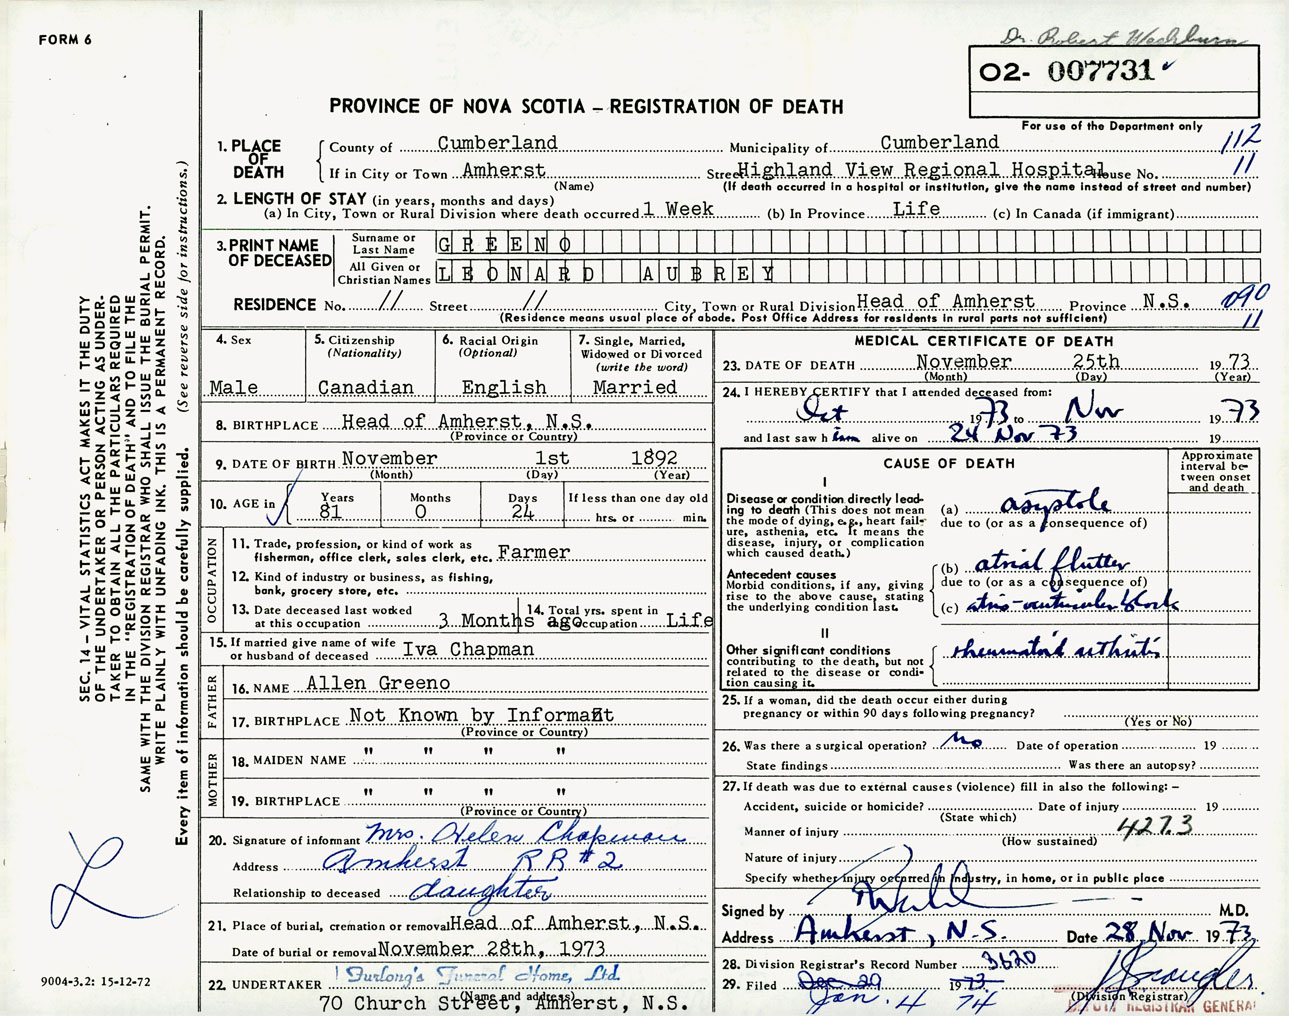 FORM 6
Dr. Robert
02- 007731
PROVINCE OF NOVA SCOTIA – REGISTRATION OF DEATH
For use of the Department only
1. PLACE OF DEATH
County of Cumberland Municipality of Cumberland 112
If in City or Town Amherst Street Highland View Regional Hospital House No. 11
(Name) (If death occurred in a hospital or institution, give the name instead of street and number)
2. LENGTH OF STAY (in years, months and days)
(a) In City, Town or Rural Division where death occurred 1 Week (b) In Province Life (c) In Canada (if immigrant)
3. PRINT NAME OF DECEASED
Surname or Last Name GREENO
All Given or Christian Names LEONARD AUBREY
RESIDENCE No. // Street // City, Town or Rural Division Head of Amherst Province N.S. 090
(Residence means usual place of abode. Post Office Address for residents in rural parts not sufficient) 11
4. Sex
Male
5. Citizenship
(Nationality)
Canadian
6. Racial Origin
(Optional)
English
7. Single, Married,
Widowed or Divorced
(write the word)
Married
8. BIRTHPLACE Head of Amherst, N.S.
(Province or Country)
9. DATE OF BIRTH November 1st 1892
(Month) (Day) (Year)
10. AGE in Years Months Days If less than one day old
81 0 24 hrs. or min.
OCCUPATION
11. Trade, profession, or kind of work as
fisherman, office clerk, sales clerk, etc. Farmer
12. Kind of industry or business, as fishing,
bank, grocery store, etc.
13. Date deceased last worked
at this occupation 3 Months ago
14. Total yrs. spent in
occupation Life
15. If married give name of wife
or husband of deceased Iva Chapman
FATHER
16. NAME Allen Greeno
17. BIRTHPLACE Not Known by Informant
(Province or Country)
MOTHER
18. MAIDEN NAME " " " "
19. BIRTHPLACE " " " "
(Province or Country)
20. Signature of informant Mrs. Helen Chapman
Address Amherst RR #2
Relationship to deceased daughter
21. Place of burial, cremation or removal Head of Amherst, N.S.
Date of burial or removal November 28th, 1973
Furlong's Funeral Home, Ltd.
22. UNDERTAKER
(Name and address)
70 Church Street, Amherst, N.S.
MEDICAL CERTIFICATE OF DEATH
23. DATE OF DEATH November 25th 1973
(Month) (Day) (Year)
24. I HEREBY CERTIFY that I attended deceased from:
Oct 1973 to Nov 1973
and last saw h im alive on 24 Nov 73 19
CAUSE OF DEATH
Approximate
interval be-
tween onset
and death
I
Disease or condition directly lead-
ing to death (This does not mean
the mode of dying, e.g., heart fail-
ure, asthenia, etc. It means the
disease, injury, or complication
which caused death.)
(a) asystole
due to (or as a consequence of)
Antecedent causes
Morbid conditions, if any, giving
rise to the above cause, stating
the underlying condition last.
(b) atrial flutter
due to (or as a consequence of)
(c) atrio-ventricular block
II
Other significant conditions
contributing to the death, but not
related to the disease or condi-
tion causing it.
rheumatoid arthritis
25. If a woman, did the death occur either during
pregnancy or within 90 days following pregnancy?
(Yes or No)
26. Was there a surgical operation? no Date of operation 19
State findings Was there an autopsy?
27. If death was due to external causes (violence) fill in also the following: –
Accident, suicide or homicide? Date of injury 19
(State which)
Manner of injury 427.3
(How sustained)
Nature of injury
Specify whether injury occurred in industry, in home, or in public place
Signed by M.D.
Address Amherst, N.S. Date 28 Nov 1973
28. Division Registrar's Record Number 3620
29. Filed Dec 29 1973
Jan. 4 74
(Division Registrar)
DEPUTY REGISTRAR GENERAL
SEC. 14 – VITAL STATISTICS ACT MAKES IT THE DUTY
OF THE UNDERTAKER OR PERSON ACTING AS UNDER-
TAKER TO OBTAIN ALL THE PARTICULARS REQUIRED
IN THE "REGISTRATION OF DEATH" AND TO FILE THE
SAME WITH THE DIVISION REGISTRAR WHO SHALL ISSUE THE BURIAL PERMIT.
WRITE PLAINLY WITH UNFADING INK. THIS IS A PERMANENT RECORD.
Every item of information should be carefully supplied. (See reverse side for instructions.)
9004-3.2: 15-12-72